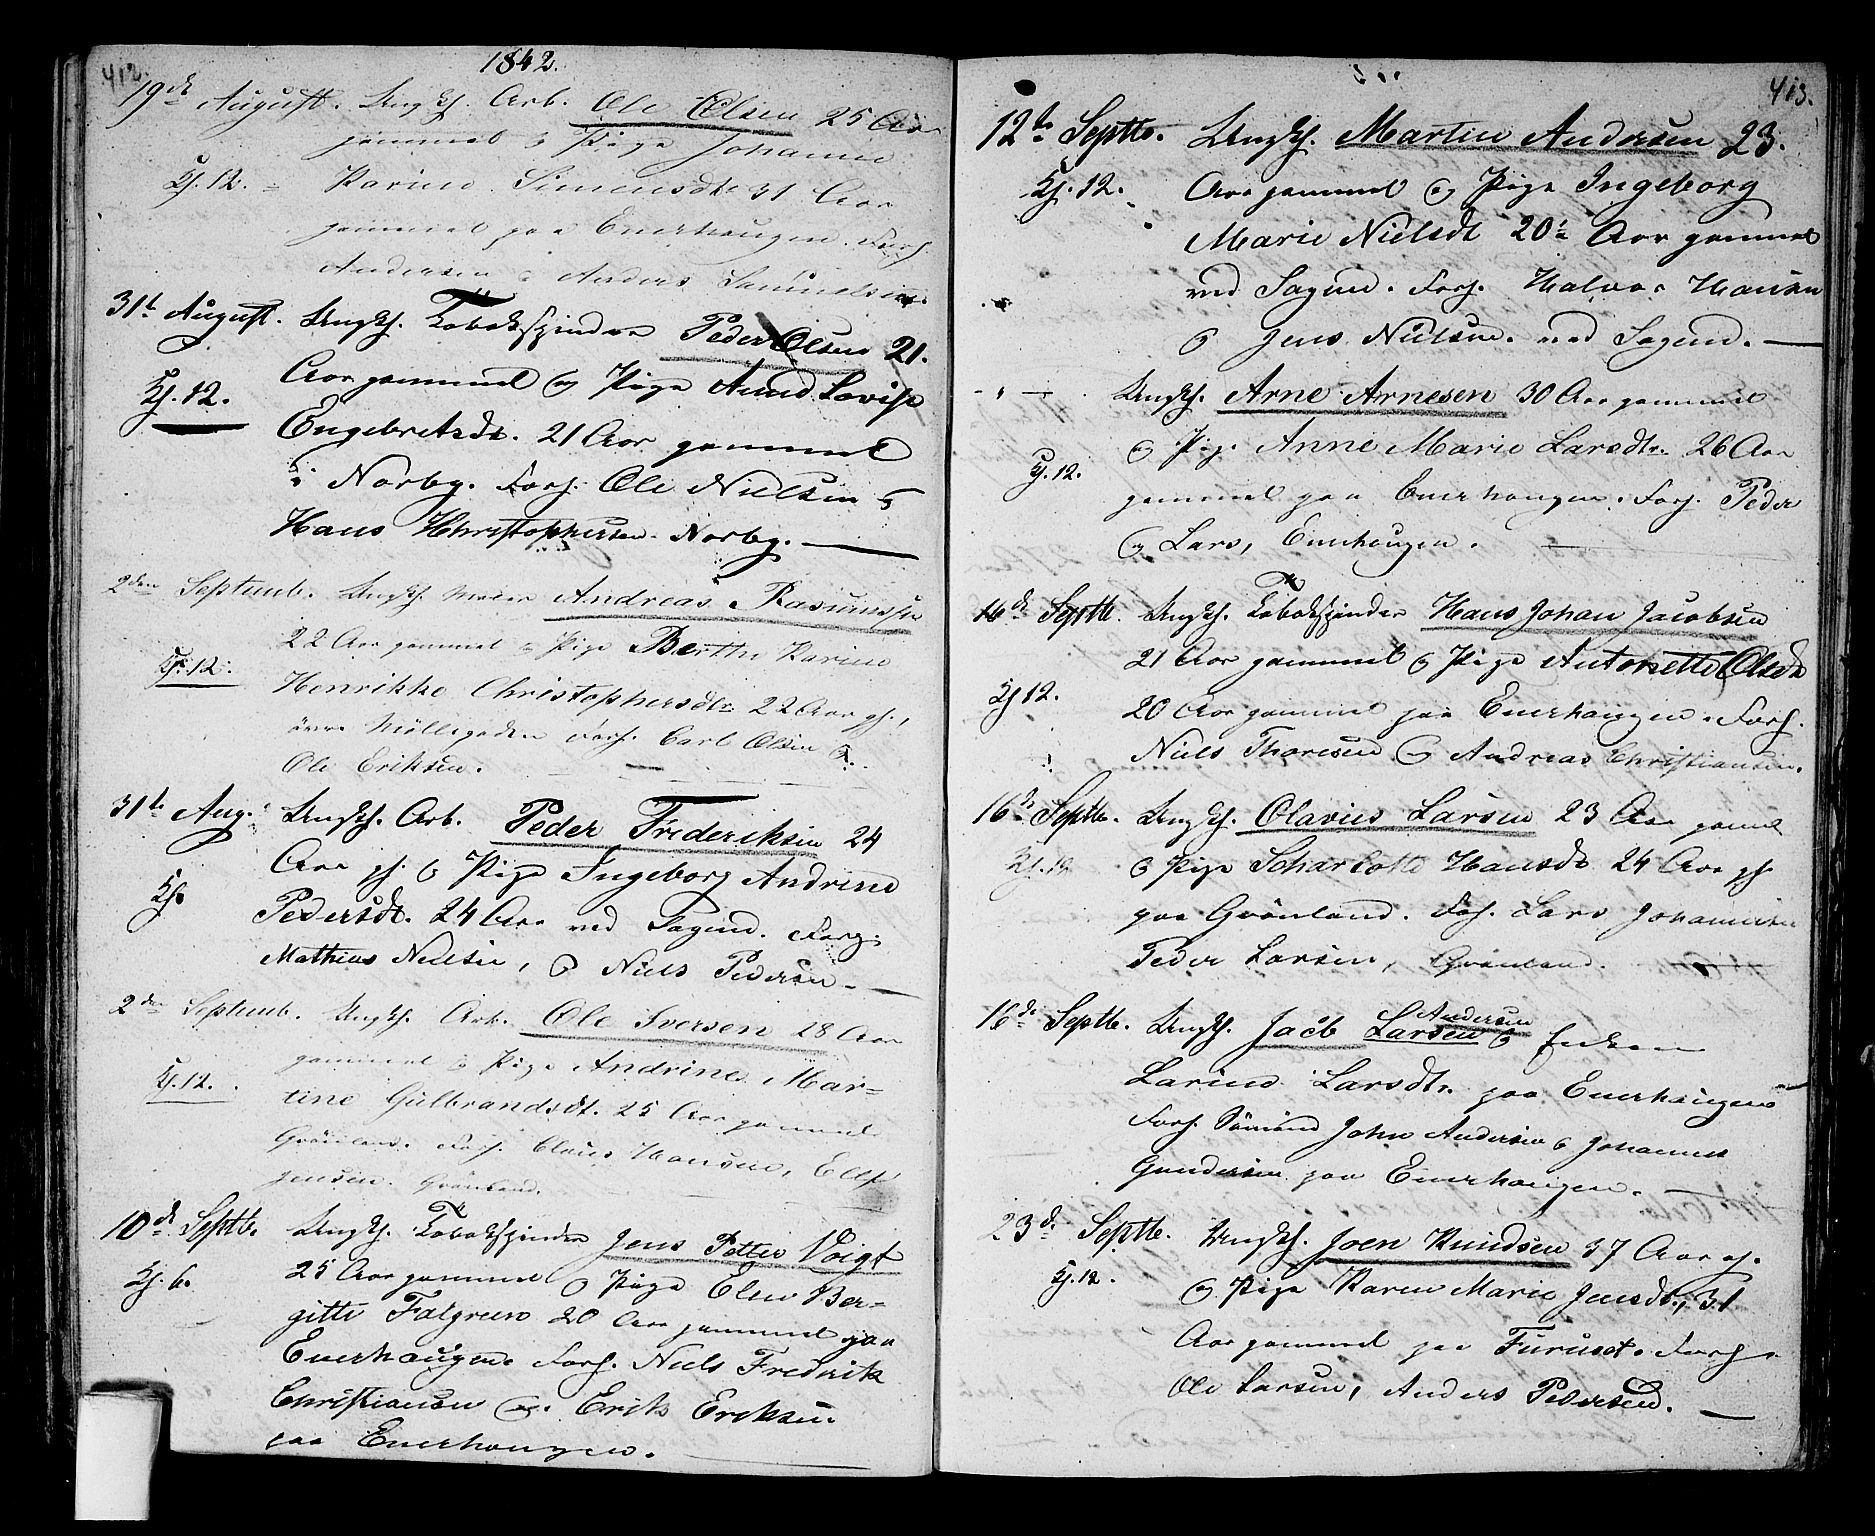 412.
1842.
19de August. Ungk. Arb. Ole Olsen 25 Aar
gammel & Pige Johanne
Kj. 12. Karine Simensdt. 31 Aar
gammel paa Enerhaugen. Forl.
Andersen & Anders Samuelsen
31t August. Ungk. Tobaksspinder Peder Olsen 21.
Aar gammel og Pige Anne Lovise
Kj. 12.
Engebretsdt. 21 Aar gammel
i Norby. Forl. Ole Nielsen &
Hans Christophersen Norby.
2den Septemb. Ungk. Andreas Rasmussen
22 Aar gammel & Pige Berthe Karine
Kj. 12.
Henrikke Christophersdtr 22 Aar gl.,
övre Möllegaden Forl. Carl Olsen &
Ole Eriksen.
31t Aug. Ungk. Arb. Peder Frederiksen 24
Aar gl. & Pige Ingeborg Andrine
Kj.
Pedersdt. 24 Aar ved Sagene. Forl.
Mathias Nielsen, & Niels Pedersen
2den Septemb. Ungk. Arb. Ole Iversen 28 Aar
gammel & Pige Andrine Mar-
Kj. 12.
tine Gulbrandsdt. 25 Aar gammel
Grönland. Forl. Claus Hansen, Ellef
Jensen. Grönland.
10de Septb. Ungk. Tobaksspinder Jens Petter Voigt
25 Aar gammel & Pige Elen Ber-
Kj. 6.
gitte Falgreen 20 Aar gammel paa
Enerhaugen Forl. Niels Fredrik
Christiansen og Erik Eriksen
paa Enerhaugen.
413.
12te Septb. Ungk. Martin Andersen 23.
Kj. 12. Aar gammel & Pige Ingeborg
Marie Nielsdt 20 Aar gammel
ved Sagene. Forl. Halvor Hansen
& Jens Nielsen. ved Sagene.
Ungk. Arne Arnesen 30 Aar gammel
& Pige Anne Marie Larsdtr. 26 Aar
Kj. 12.
gammel paa Enerhaugen. Forl. Peder
& Lars, Enerhaugen.
16de Septb. Ungk. Tobaksspinder Hans Johan Jacobsen
21 Aar gammel & Pige Antonette Olsdt
Kj 12.
20 Aar gammel paa Enerhaugen. Forl.
Niels Thoresen & Andreas Christiansen.
16de Septb. Ungk. Olavius Larsen 23 Aar gamel
Kj. 12 & Pige Scharlotte Hansdt 24 Aar gl.
paa Grönland. Forl. Lars Johannesen
Peder Larsen, Grönland.
16de Septb. Ungk. Jacob Larsen Andersen & Enken
Larine Larsdtr. paa Enerhaugen
Forl. Sömand John Andersen & Johannes
Gundersen paa Enerhaugen.
23de Septb. Ungk. Joen Knudsen 37 Aar gl.
Kj. 12. & Pige Karen Marie Jensdt., 31
Aar gammel paa Furuset. Forl.
Ole Larsen, Anders Pedersen.